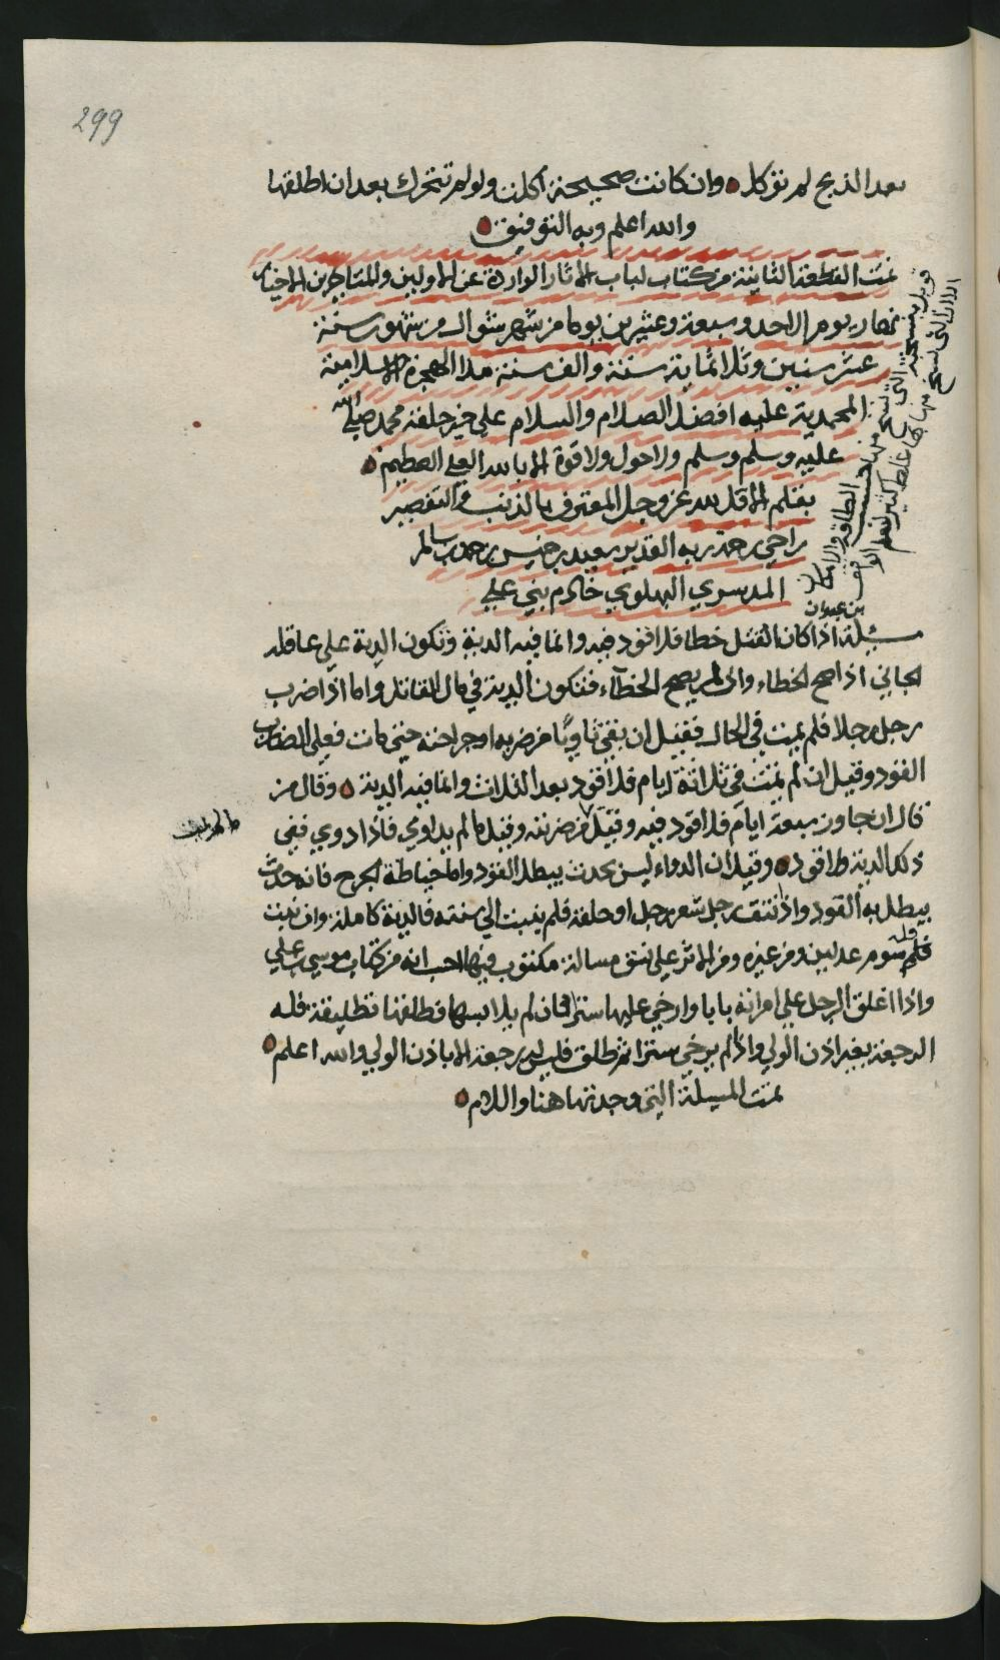 299
بعد الذبح لم توكل وان كانت صحيحة أكلت ولو لم تتحرك بعد ان اطلقها
والله اعلم وبه التوفيق
تمت القطعة الثانية من كتاب لباب الاثار الواردة عن الاولين والمتاخرين الاخيار
نهار يوم الاحد وسبعة وعشرين يوما من شهر شوال من شهور سنة
عشر سنين وثلاثماية سنة والف سنة هذا الهجرة الاسلامية
المحمدية عليه افضل الصلاة والسلام على خير خلقه محمد صلى الله
عليه وسلم وسلم ولا حول ولا قوة الا بالله العلي العظيم
بقلم الاقل لله عز وجل المعترف بالذنب والتقصير
راجي رحمة ربه القدير سعيد بن خميس بن حمد بن سالم
المدسري البهلوي خادم بني علي
قوبل بنسخته التي نسخ منها حسب الطاقة والامكان
الا ان التي نسخ منها بها غلط كثير
مسئلة اذا كان القتل خطا فلا قود فيه وانما فيه الدية وتكون الدية على عاقلة
الجاني اذا صح الخطاء وان لم يصح الخطآء فتكون الدية في مال القاتل واما اذا ضرب
رجل رجلا فلم يمت في الحال فقيل ان بقي ثاويًا من ضربه او جراحته حتى مات فعلى الضارب
القود وقيل ان لم يمت في ثلاثة ايام فلا قود بعد الثلاث وانما فيه الدية وقال من
قال ان جاوز سبعة ايام فلا قود فيه وقيل من ضربته وقيل ما لم يداوي فاذا دوي ففي
ذلك الدية ولا قود وقيل ان الدواء ليس بحدث يبطل القود واما خياطة الجرح فانه حدث
يبطل به القود واذا نتف رجل شعر رجل او حلقه فلم ينبت الى سنته فالدية كاملة وان نبت
فله سوم عدلين ومن غيره ومن الاثر على نسق مسالة مكتوب فيها احسب انه من كتاب موسى بن علي
واذا اغلق الرجل على امراته بابا وارخى عليها سترا فان لم يلابسها فطلقها تطليقة فله
الرجعة بغير اذن الولي واذا لم يرخي سترا ثم طلق فليس له رجعة الا باذن الولي والله اعلم
تمت المسيلة التي وجدتها هنا والسلام